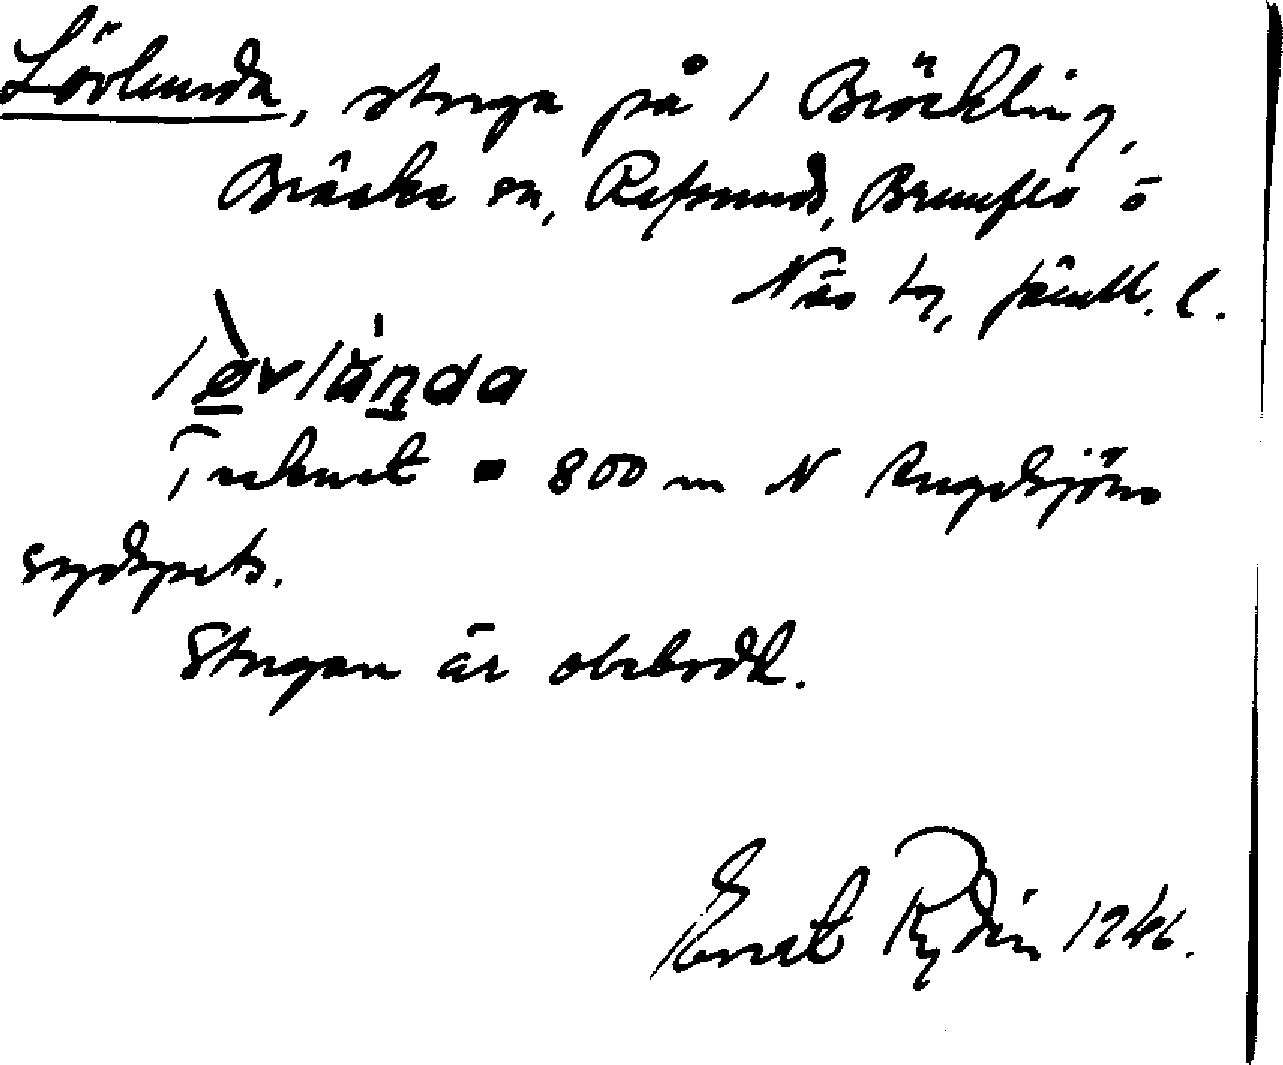 Lövlunda, stuga på 1 Bröckling,
Bräcke sn, Refsunds, Brunflo o
Näs tg, Jämtl. l.
lø̀vlȧn̲da
Tecknet = 800 m N Ragdsjöns
sydspets.
Stugan är obebodd.
Ernst Rydén 1946.